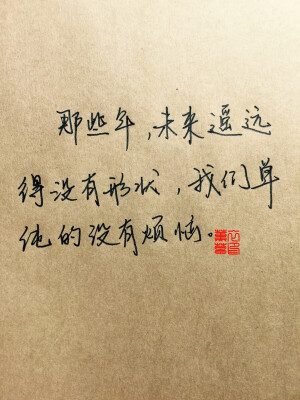 那些年,未来遥远
得没有形状,我们单
纯的没有烦恼。